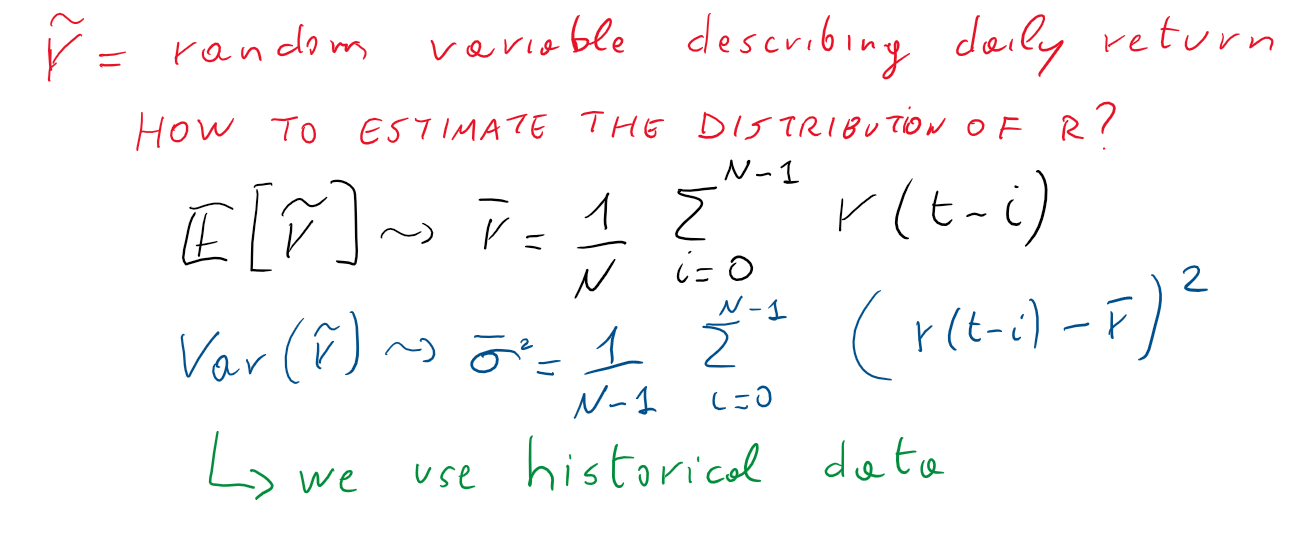 r̃ = random variable describing daily return
HOW TO ESTIMATE THE DISTRIBUTION OF R?
𝔼[r̃] ⇝ r̄ = 1/N ∑_{i=0}^{N-1} r(t-i)
Var(r̃) ⇝ σ̄² = 1/(N-1) ∑_{i=0}^{N-1} (r(t-i) - r̄)²
↳ we use historical data